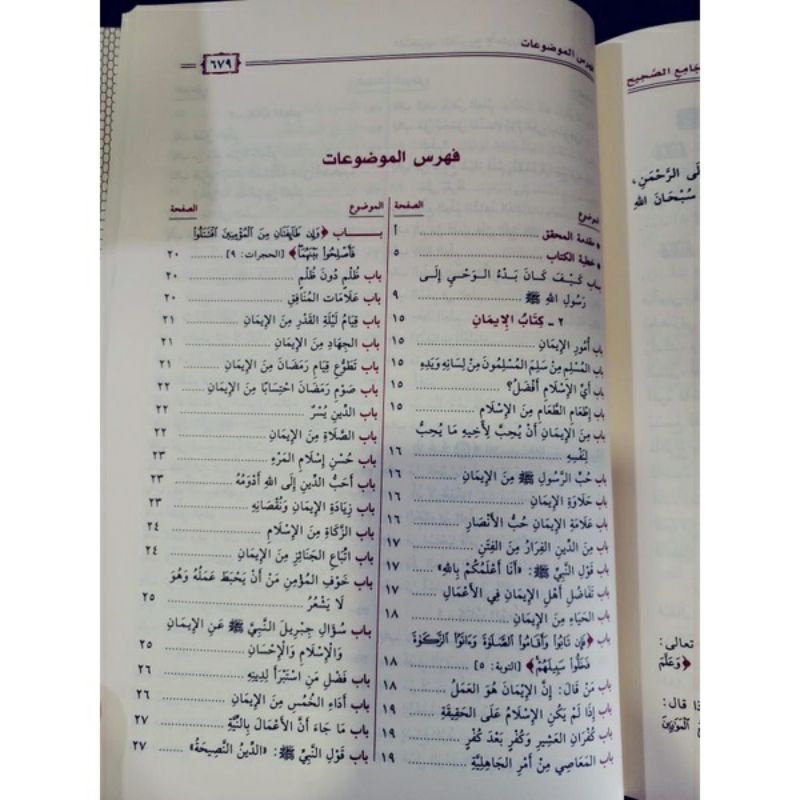 فهرس الموضوعات
٦٧٩
فهرس الموضوعات
الموضوع الصفحة
* مقدمة المحقق ........ أ
* خطبة الكتاب ........ ٥
باب كَيْفَ كَانَ بَدْءُ الوَحْيِ إِلَى
رَسُولِ اللهِ ﷺ ........ ٩
٢ - كِتَابُ الإِيمَانِ ١٥
باب أُمُورِ الإِيمَانِ ........ ١٥
باب المُسْلِمِ مَنْ سَلِمَ المُسْلِمُونَ مِنْ لِسَانِهِ وَيَدِهِ ١٥
باب أَيُّ الإِسْلَامِ أَفْضَلُ؟ ........ ١٥
باب إِطْعَامِ الطَّعَامِ مِنَ الإِسْلَامِ ........ ١٥
باب مِنَ الإِيمَانِ أَنْ يُحِبَّ لِأَخِيهِ مَا يُحِبُّ
لِنَفْسِهِ ........ ١٦
باب حُبُّ الرَّسُولِ ﷺ مِنَ الإِيمَانِ ........ ١٦
باب حَلَاوَةِ الإِيمَانِ ........ ١٦
باب عَلَامَةِ الإِيمَانِ حُبُّ الأَنْصَارِ ........ ١٦
باب مِنَ الدِّينِ الفِرَارُ مِنَ الفِتَنِ ........ ١٧
باب قَوْلِ النَّبِيِّ ﷺ: «أَنَا أَعْلَمُكُمْ بِاللهِ» ........ ١٧
باب تَفَاضُلِ أَهْلِ الإِيمَانِ فِي الأَعْمَالِ ........ ١٧
باب الحَيَاءِ مِنَ الإِيمَانِ ........ ١٨
باب ﴿فَإِن تَابُوا وَأَقَامُوا الصَّلَوٰةَ وَءَاتَوُا الزَّكَوٰةَ
فَخَلُّوا سَبِيلَهُمْ﴾ [التوبة: ٥] ........ ١٨
باب مَنْ قَالَ: إِنَّ الإِيْمَانَ هُوَ العَمَلُ ........ ١٨
باب إِذَا لَمْ يَكُنِ الإِسْلَامُ عَلَى الحَقِيقَةِ ........ ١٩
باب كُفْرَانِ العَشِيرِ وَكُفْرٍ بَعْدَ كُفْرٍ ........ ١٩
باب المَعَاصِي مِنْ أَمْرِ الجَاهِلِيَّةِ ........ ١٩
الموضوع الصفحة
بـــاب ﴿وَإِن طَائِفَتَانِ مِنَ الْمُؤْمِنِينَ اقْتَتَلُوا
فَأَصْلِحُوا بَيْنَهُمَا﴾ [الحجرات: ٩] ........ ٢٠
باب ظُلْمٍ دُونَ ظُلْمٍ ........ ٢٠
باب عَلَامَاتِ المُنَافِقِ ........ ٢٠
باب قِيَامُ لَيْلَةِ القَدْرِ مِنَ الإِيمَانِ ........ ٢١
باب الجِهَادِ مِنَ الإِيمَانِ ........ ٢١
باب تَطَوُّعِ قِيَامِ رَمَضَانَ مِنَ الإِيمَانِ ........ ٢١
باب صَوْمِ رَمَضَانَ احْتِسَابًا مِنَ الإِيمَانِ ........ ٢٢
باب الدِّينِ يُسْرٌ ........ ٢٢
باب الصَّلَاةِ مِنَ الإِيمَانِ ........ ٢٢
باب حُسْنِ إِسْلَامِ المَرْءِ ........ ٢٣
باب أَحَبُّ الدِّينِ إِلَى اللهِ أَدْوَمُهُ ........ ٢٣
باب زِيَادَةِ الإِيمَانِ وَنُقْصَانِهِ ........ ٢٣
باب الزَّكَاةِ مِنَ الإِسْلَامِ ........ ٢٤
باب اتِّبَاعِ الجَنَائِزِ مِنَ الإِيمَانِ ........ ٢٤
باب خَوْفِ المُؤْمِنِ مَنْ أَنْ يَحْبَطَ عَمَلُهُ وَهُوَ
لَا يَشْعُرُ ........ ٢٥
باب سُؤَالِ جِبْرِيلَ النَّبِيَّ ﷺ عَنِ الإِيمَانِ
وَالإِسْلَامِ وَالإِحْسَانِ ........ ٢٥
باب فَضْلِ مَنِ اسْتَبْرَأَ لِدِينِهِ ........ ٢٦
باب أَدَاءِ الخُمُسِ مِنَ الإِيمَانِ ........ ٢٦
باب مَا جَاءَ أَنَّ الأَعْمَالَ بِالنِّيَّةِ ........ ٢٧
باب قَوْلِ النَّبِيِّ ﷺ: «الدِّينُ النَّصِيحَةُ» ........ ٢٧
الصَّحِيح
الرَّحْمَنِ،
سُبْحَانَ اللهِ
تعالى:
﴿وَعَلَّمَ
قال: